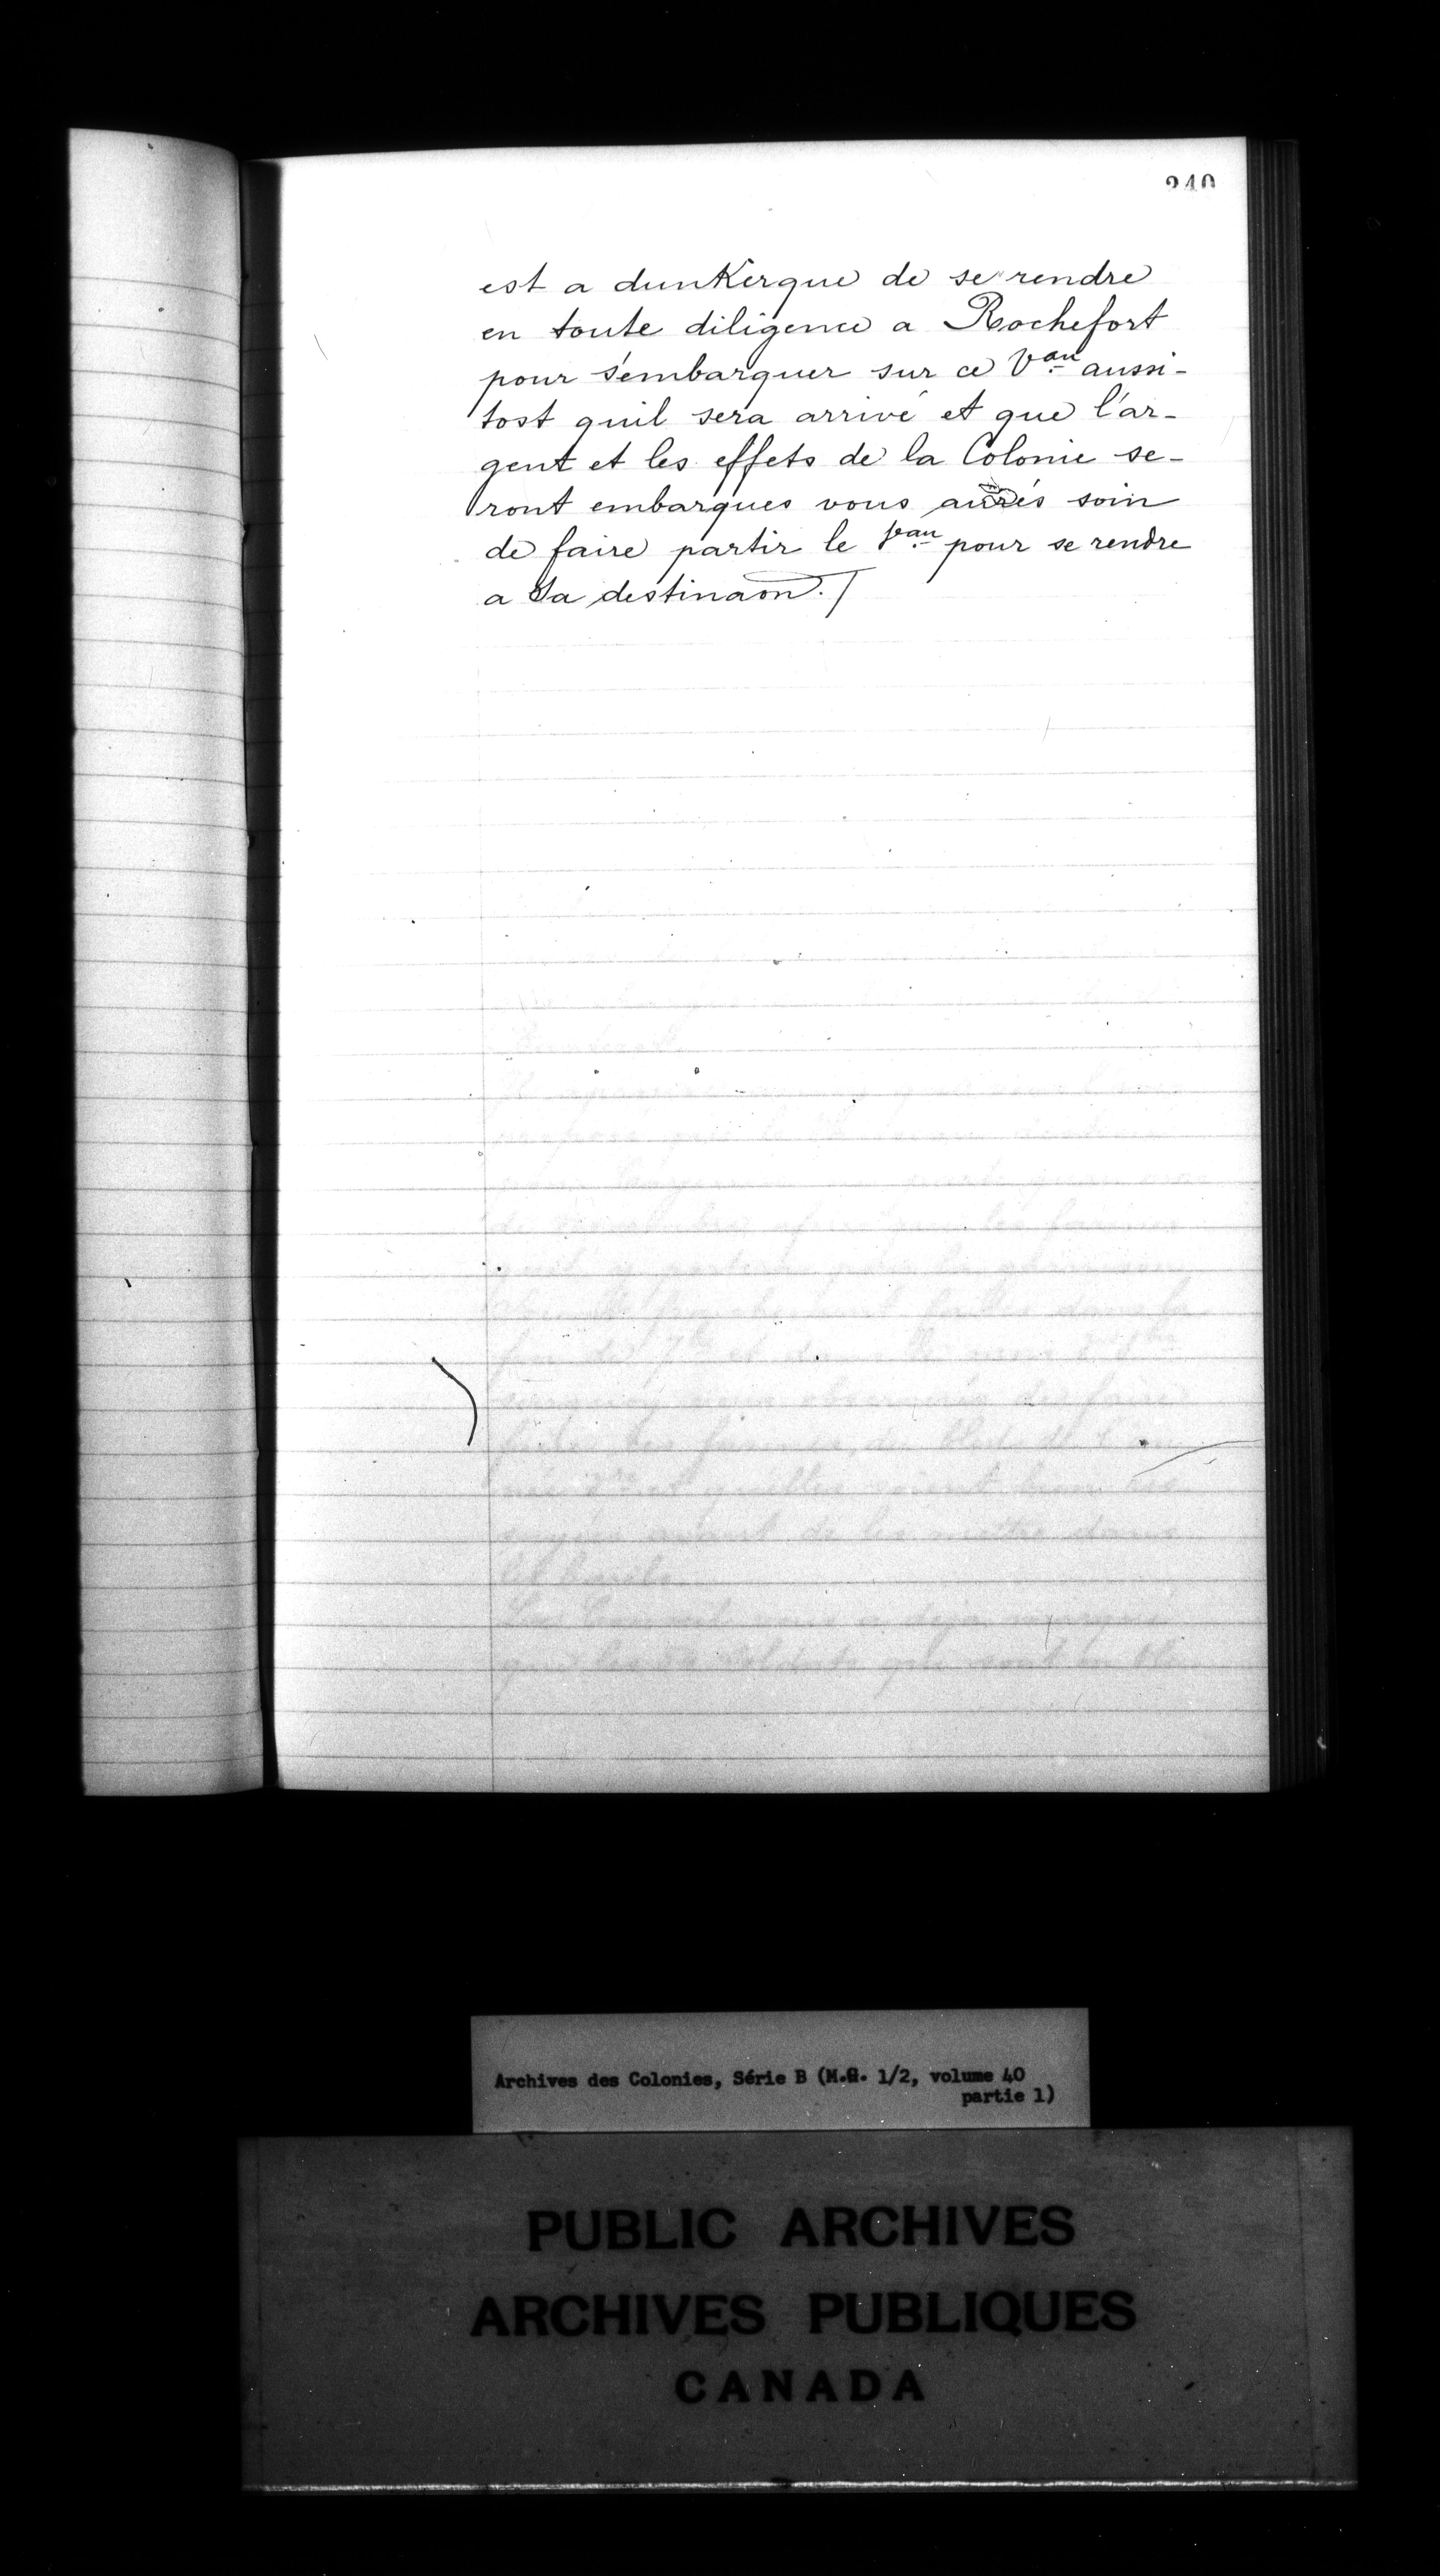 240
est a dunKerque de se rendre
en toute diligence a Rochefort
pour s'embarquer sur ce Vau aussi-
tost quil sera arrivé et que l'ar-
gent et les effets de la Colonie se-
ront embarques vous aurés soin
de faire partir le Vau pour se rendre
a Sa destinaon./
Archives des Colonies, Série B (M.G. 1/2, volume 40
partie 1)
PUBLIC ARCHIVES
ARCHIVES PUBLIQUES
CANADA